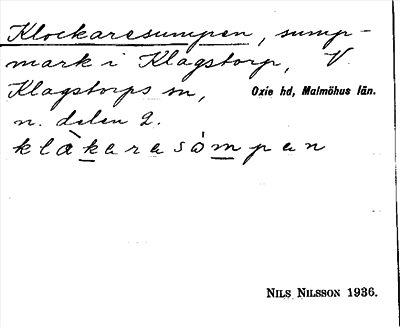 Klockaresumpen, sump-
mark i Klagstorp, V.
Klagstorps sn, Oxie hd, Malmöhus län.
n. delen 2.
klàkaresómpen
NILS NILSSON 1936.